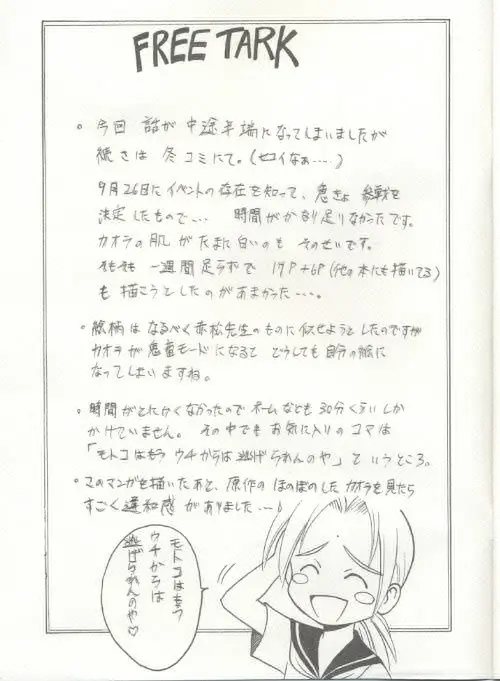 FREE TARK
。今回 話が 中途半端になってしまいましたが
続きは 冬コミにて。(セコイなぁ…)
9月26日にイベントの存在を知って、急きょ 参戦を
決定したもので… 時間がかなり足りなかったです。
カオラの肌がたまに白いのも そのせいです。
そもそも 一週間足らずで 17P+6P(他の本にも描いてる)
も描こうとしたのがあまかった…。
。絵柄は なるべく赤松先生のものに似せようとしたのですが
カオラが鬼畜モードになると どうしても自分の絵に
なってしまいますね。
。時間がとにかくなかったので ネームなども 30分くらいしか
かけていません。 その中でも お気に入りの コマは
「モトコはもう ウチからは 逃げられんのや」 という ところ。
。このマンガを描いたあと、原作の ほのぼのした カオラを見たら
すごく 違和感 がありました…♪
モトコはもう
ウチからは
逃げられんのや♡